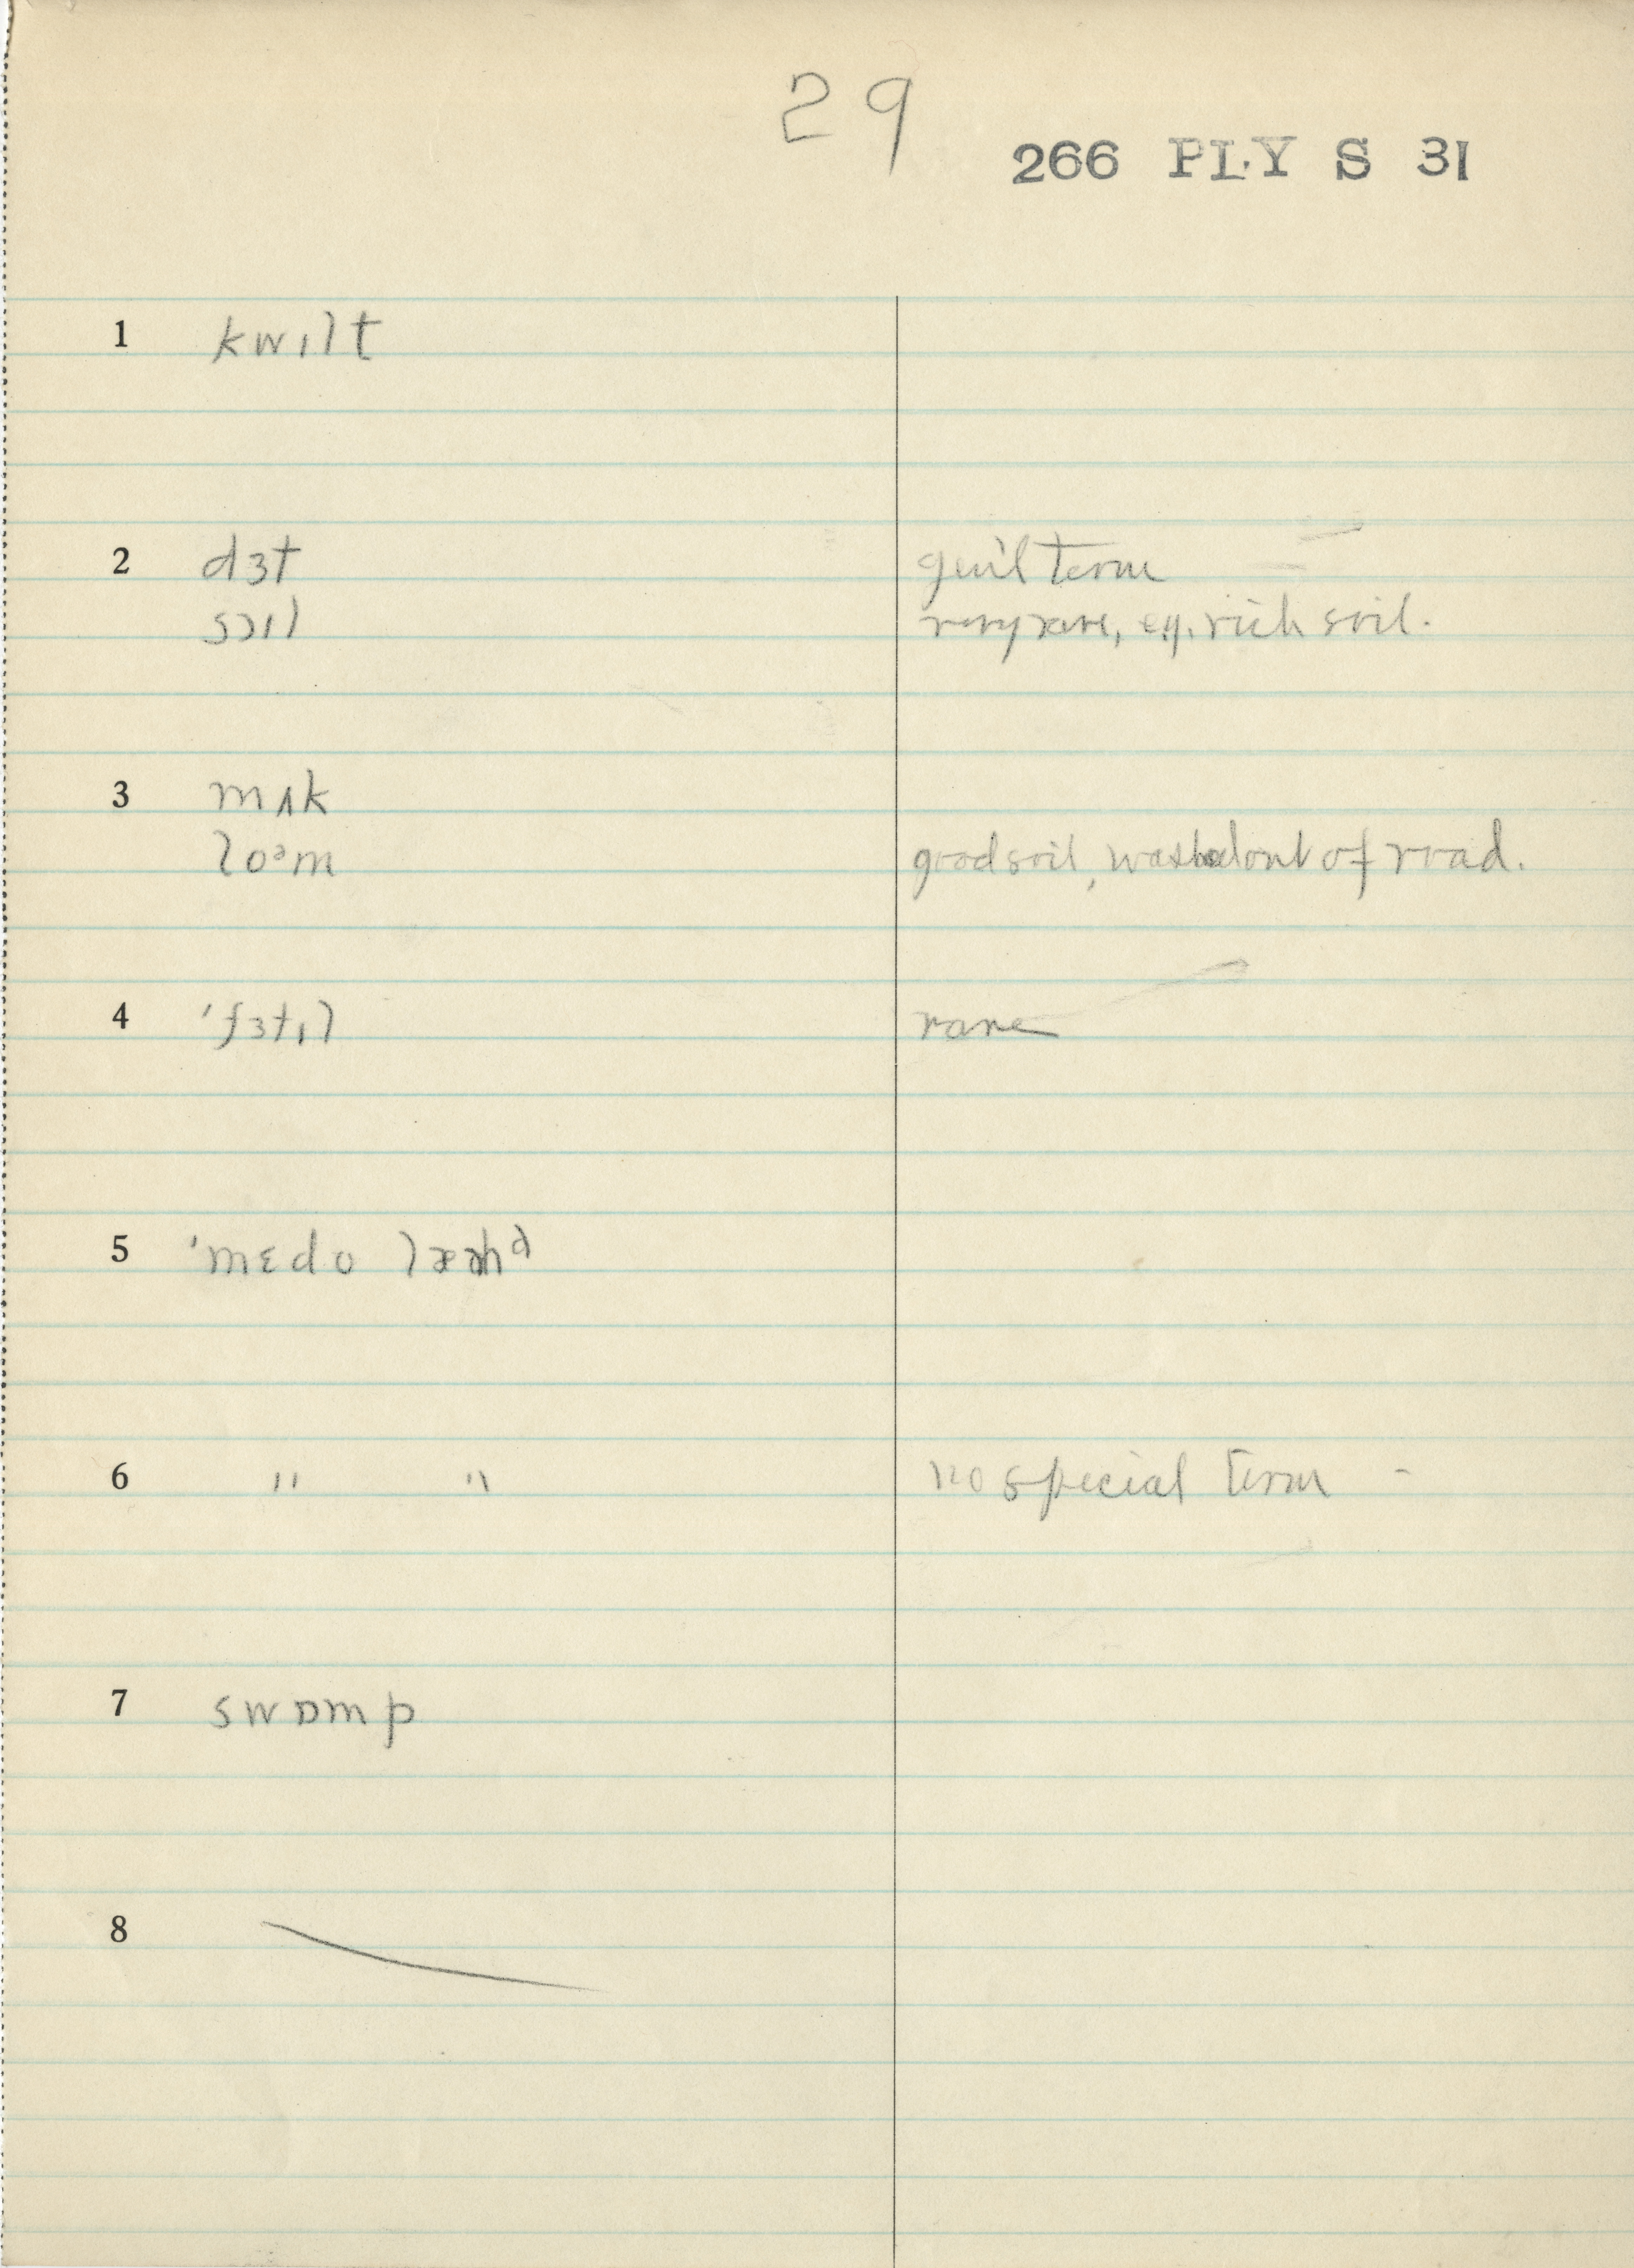 29
266 PLY S 31
1 kwɪlt
2 dɜt gen'l term
sɔɪl very rare, e.g. rich soil.
3 mʌk
loᵊm good soil, washed out of road.
4 'fɜtɪl rare
5 'mɛdo lænᵈ
6 " " no special term -
7 swɒmp
8